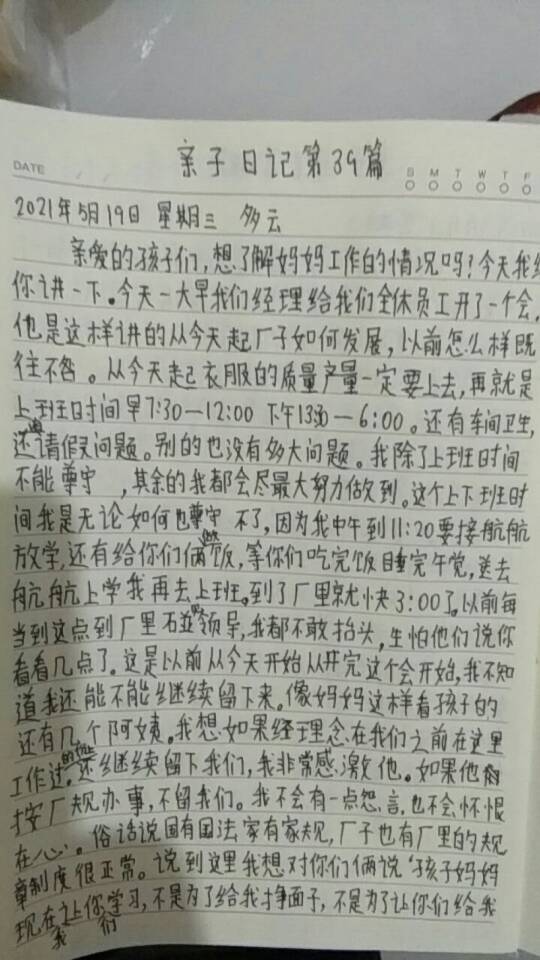 亲子日记第39篇
DATE
S M T W T F
2021年5月19日 星期三 多云
亲爱的孩子们,想了解妈妈工作的情况吗?今天我给
你讲一下。今天一大早我们经理给我们全体员工开了一个会,
他是这样讲的从今天起厂子如何发展,以前怎么样既
往不咎。从今天起衣服的质量产量一定要上去,再就是
上班时间早7:30—12:00 下午1:30—6:00。还有车间卫生,
还请假问题。别的也没有多大问题。我除了上班时间
不能尊守,其余的我都会尽最大努力做到。这个上下班时
间我是无论如何也尊守不了,因为我中午到11:20要接航航
放学,还有给你们俩做饭,等你们吃完饭睡完午觉,送去
航航上学我再去上班。到了厂里就快3:00了。以前每
当到这点到厂里碰见领导,我都不敢抬头,生怕他们说你
看看几点了。这是以前从今天开始从开完这个会开始,我不知
道我还能不能继续留下来。像妈妈这样看孩子的
还有几个阿姨。我想如果经理念在我们之前在这里
工作过的份上,还继续留下我们,我非常感激他。如果他
按厂规办事,不留我们。我不会有一点怨言,也不会怀恨
在心。俗话说国有国法家有家规,厂子也有厂里的规
章制度很正常。说到这里我想对你们俩说“孩子妈妈
现在让你们学习,不是为了给我挣面子,不是为了让你们给我